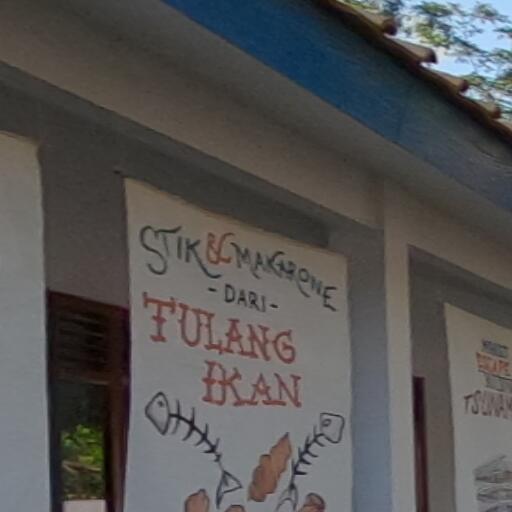 STIK & MAKARONE
- DARI -
TULANG
IKAN
ESCAPE
TSUNAM